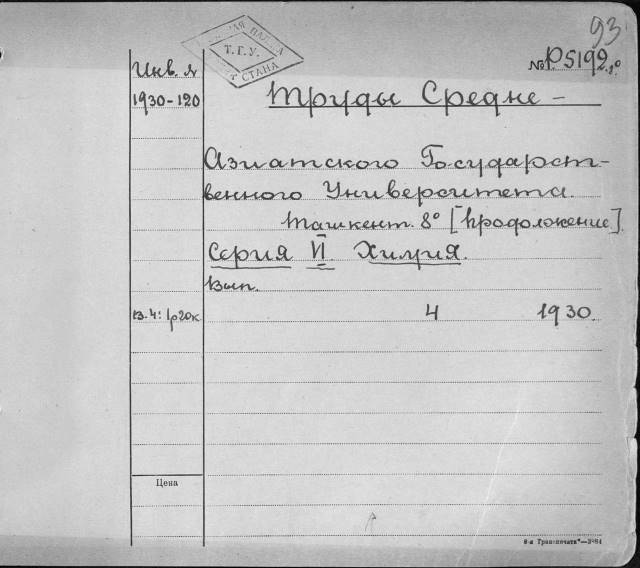 93
Т.Г.У.
СТАНА
Инв. №
№ P5192.8°
1930-120
Труды Средне-
Азиатского Государст-
венного Университета.
Ташкент. 8° [Продолжение].
Серия VI. Химия.
Вып.
в.4: 1р20к
4 1930.
Цена